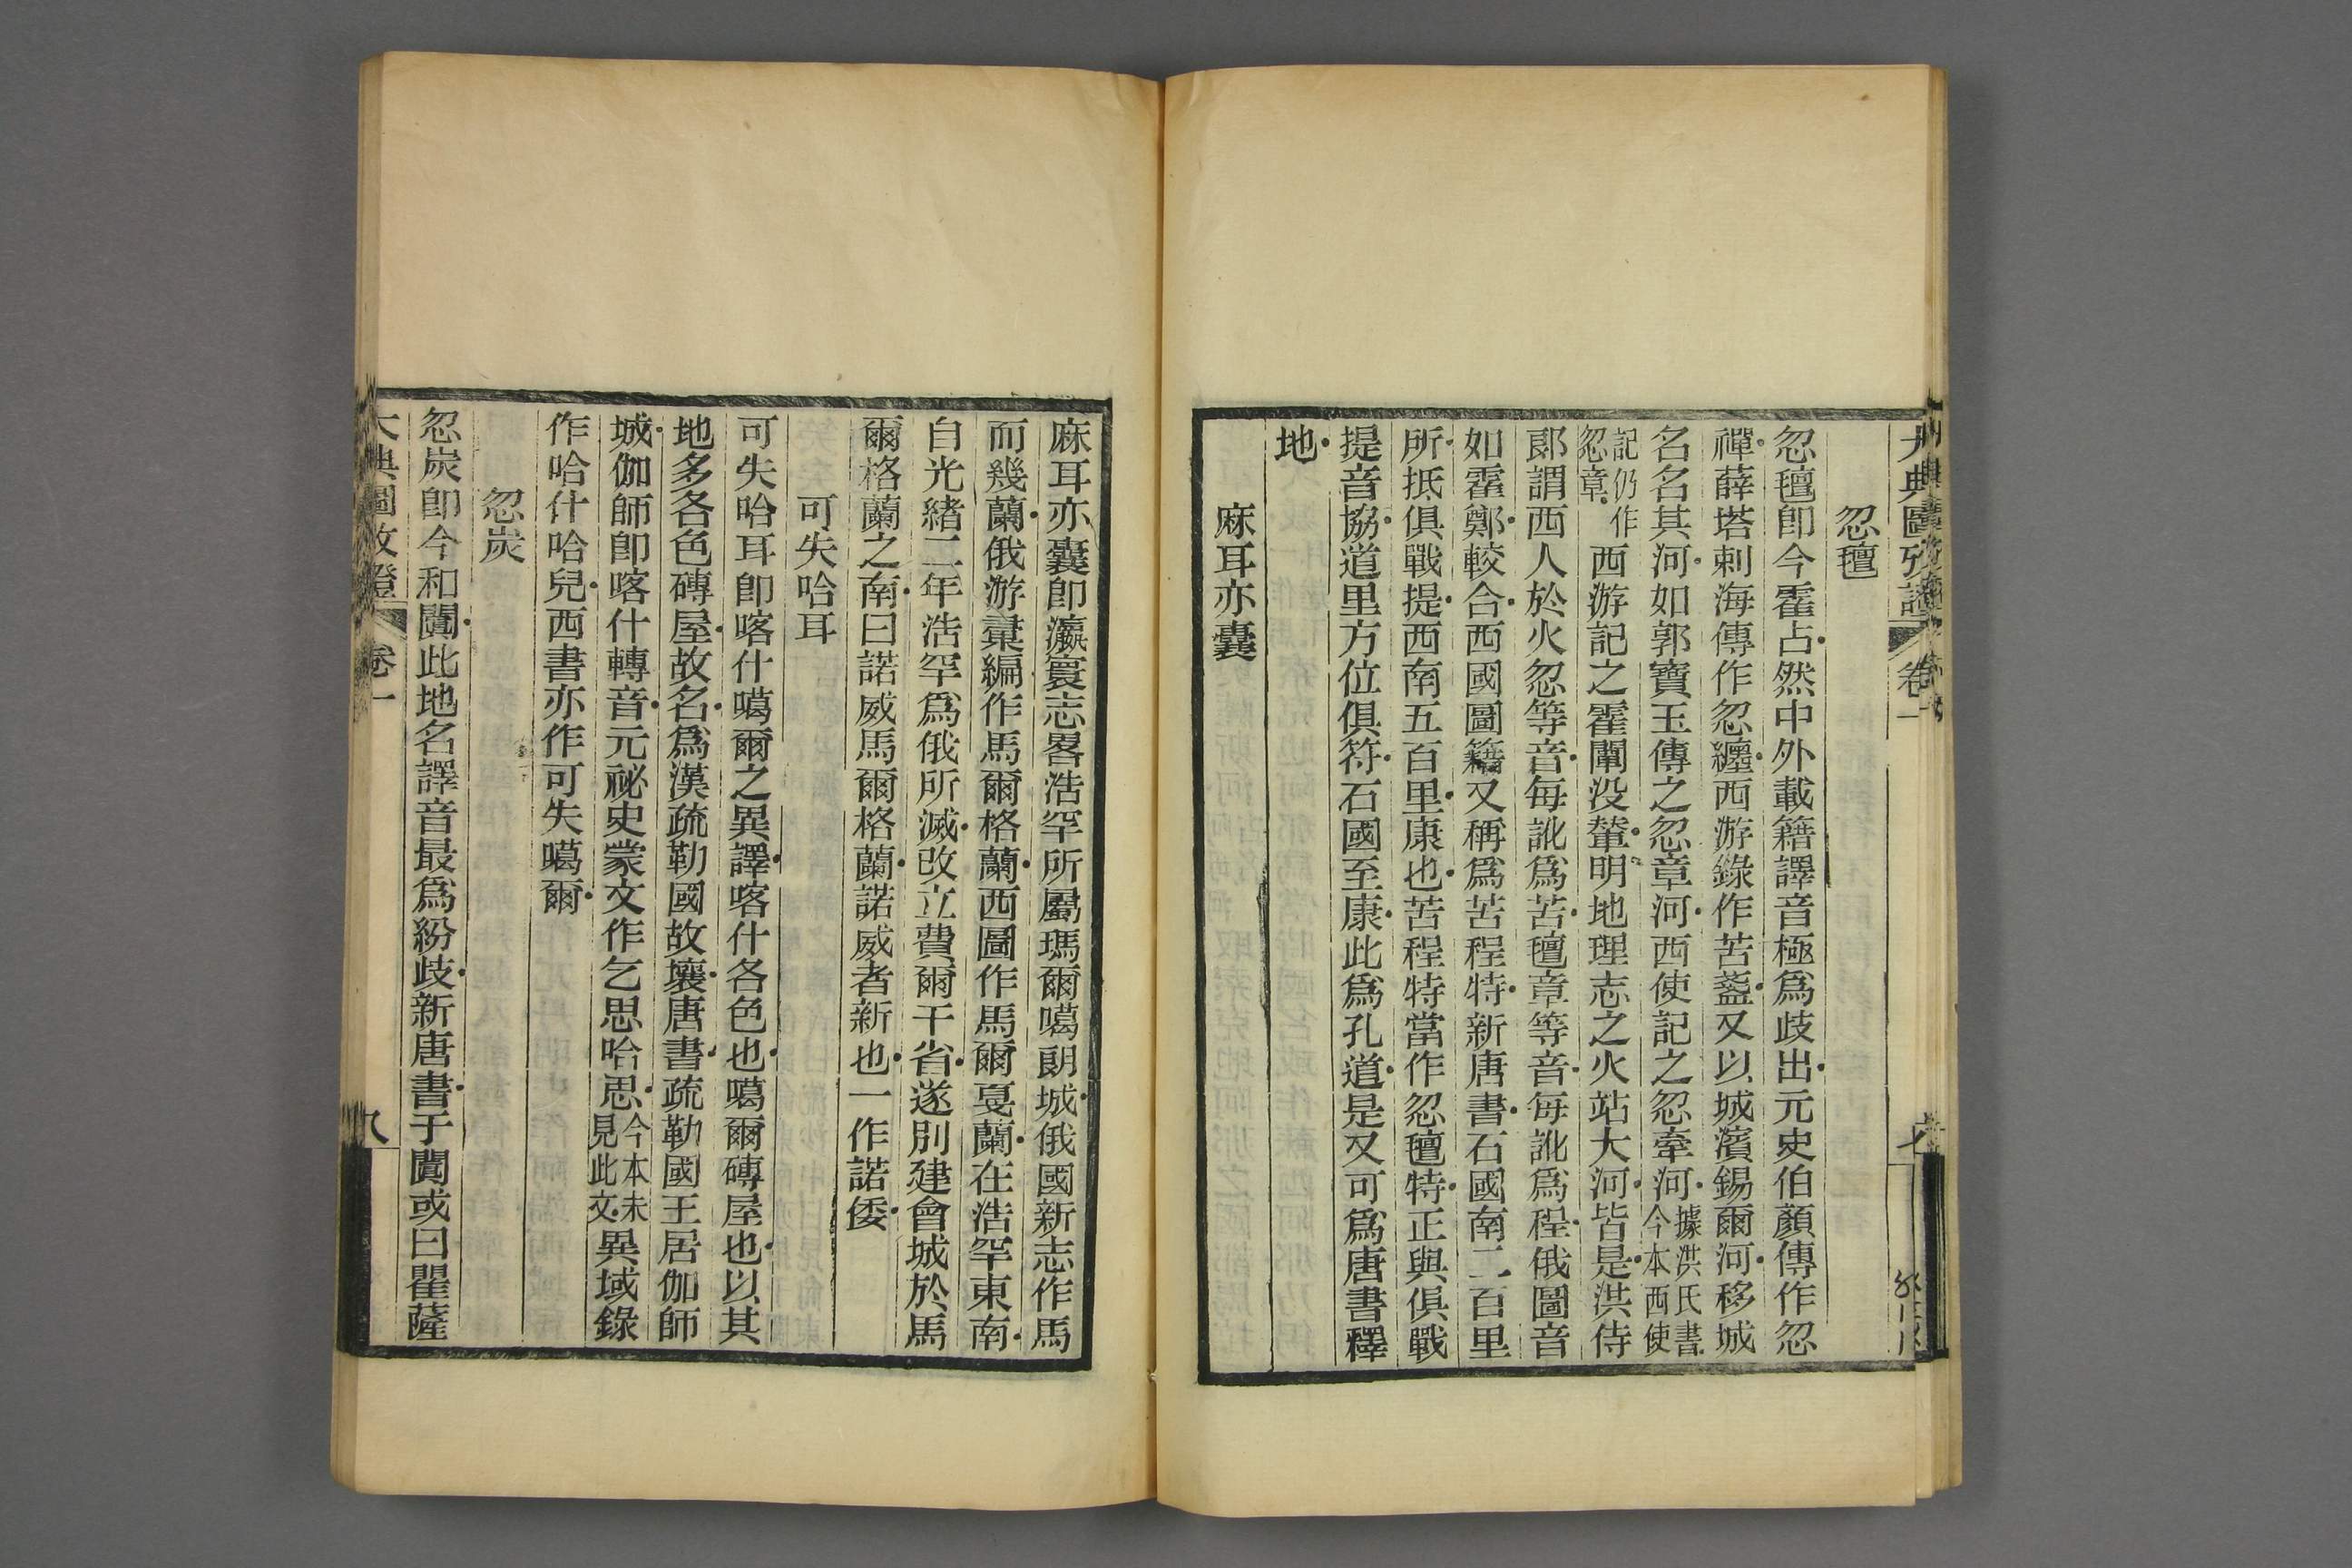 大典圖攷證 卷一 七
忽氊
忽氊卽今霍占然中外載籍譯音極爲歧出元史伯顏傳作忽
禪薛塔剌海傳作忽纏西游錄作苦盞又以城濱錫爾河移城
名名其河如郭寶玉傳之忽章河西使記之忽牽河據洪氏書今本西使
記仍作忽章西游記之霍闡没輦明地理志之火站大河皆是洪侍
郞謂西人於火忽等音每訛爲苦氊章等音每訛爲程俄圖音
如霍鄭較合西國圖籍又稱爲苦程特新唐書石國南二百里
所抵俱戰提西南五百里康也苦程特當作忽氊特正與俱戰
提音協道里方位俱符石國至康此爲孔道是又可爲唐書釋
地
麻耳亦囊
麻耳亦囊卽瀛寰志畧浩罕所屬瑪爾噶朗城俄國新志作馬
而幾蘭俄游彚編作馬爾格蘭西圖作馬爾戛蘭在浩罕東南
自光緒二年浩罕爲俄所滅改立費爾干省遂別建會城於馬
爾格蘭之南曰諾威馬爾格蘭諾威者新也一作諾倭
可失哈耳
可失哈耳卽喀什噶爾之異譯喀什各色也噶爾磚屋也以其
地多各色磚屋故名爲漢疏勒國故壤唐書疏勒國王居伽師
城伽師卽喀什轉音元祕史蒙文作乞思哈思今本未見此文異域錄
作哈什哈兒西書亦作可失噶爾
忽炭
忽炭卽今和闐此地名譯音最爲紛歧新唐書于闐或曰瞿薩
大典圖攷證 卷一 八